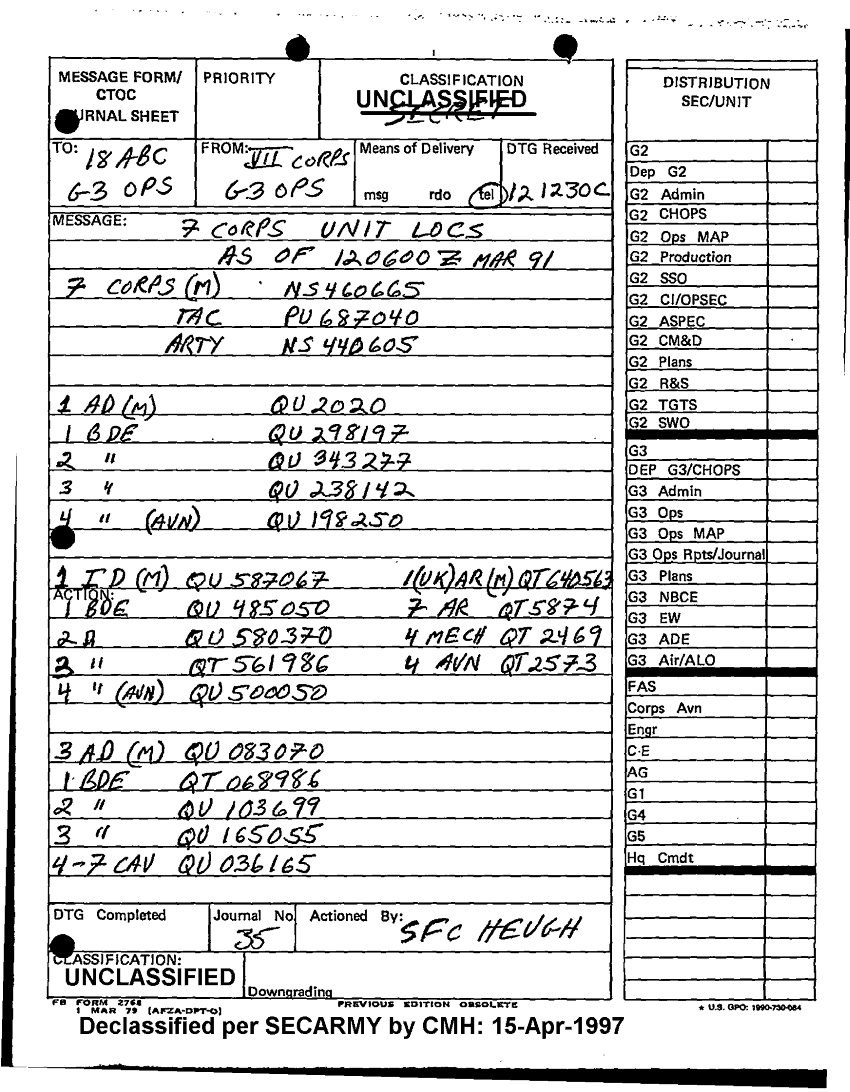 MESSAGE FORM/ CTOC
JOURNAL SHEET
PRIORITY
CLASSIFICATION
UNCLASSIFIED
SECRET
TO: 18 ABC
G-3 OPS
FROM: VII CORPS
G-3 OPS
Means of Delivery
msg rdo tel
DTG Received
121230C
MESSAGE: 7 CORPS UNIT LOCS
AS OF 120600Z MAR 91
7 CORPS (M) NS460665
TAC PU687040
ARTY NS440605
1 AD (M) QU2020
1 BDE QU298197
2 " QU343277
3 " QU238142
4 " (AVN) QU198250
1 ID (M) QU587067 1(UK)AR(M) QT640563
ACTION:
1 BDE QU485050 7 AR QT5874
2 " QU580370 4 MECH QT2469
3 " QT561986 4 AVN QT2573
4 " (AVN) QU500050
3 AD (M) QU083070
1 BDE QT068986
2 " QU103699
3 " QU165055
4-7 CAV QU036165
DTG Completed
Journal No.
35
Actioned By: SFC HEUGH
CLASSIFICATION:
UNCLASSIFIED
Downgrading
FB FORM 2768
1 MAR 79 (AFZA-DPT-O)
PREVIOUS EDITION OBSOLETE
★ U.S. GPO: 1990-730-084
Declassified per SECARMY by CMH: 15-Apr-1997
DISTRIBUTION
SEC/UNIT
G2
Dep G2
G2 Admin
G2 CHOPS
G2 Ops MAP
G2 Production
G2 SSO
G2 CI/OPSEC
G2 ASPEC
G2 CM&D
G2 Plans
G2 R&S
G2 TGTS
G2 SWO
G3
DEP G3/CHOPS
G3 Admin
G3 Ops
G3 Ops MAP
G3 Ops Rpts/Journal
G3 Plans
G3 NBCE
G3 EW
G3 ADE
G3 Air/ALO
FAS
Corps Avn
Engr
C-E
AG
G1
G4
G5
Hq Cmdt